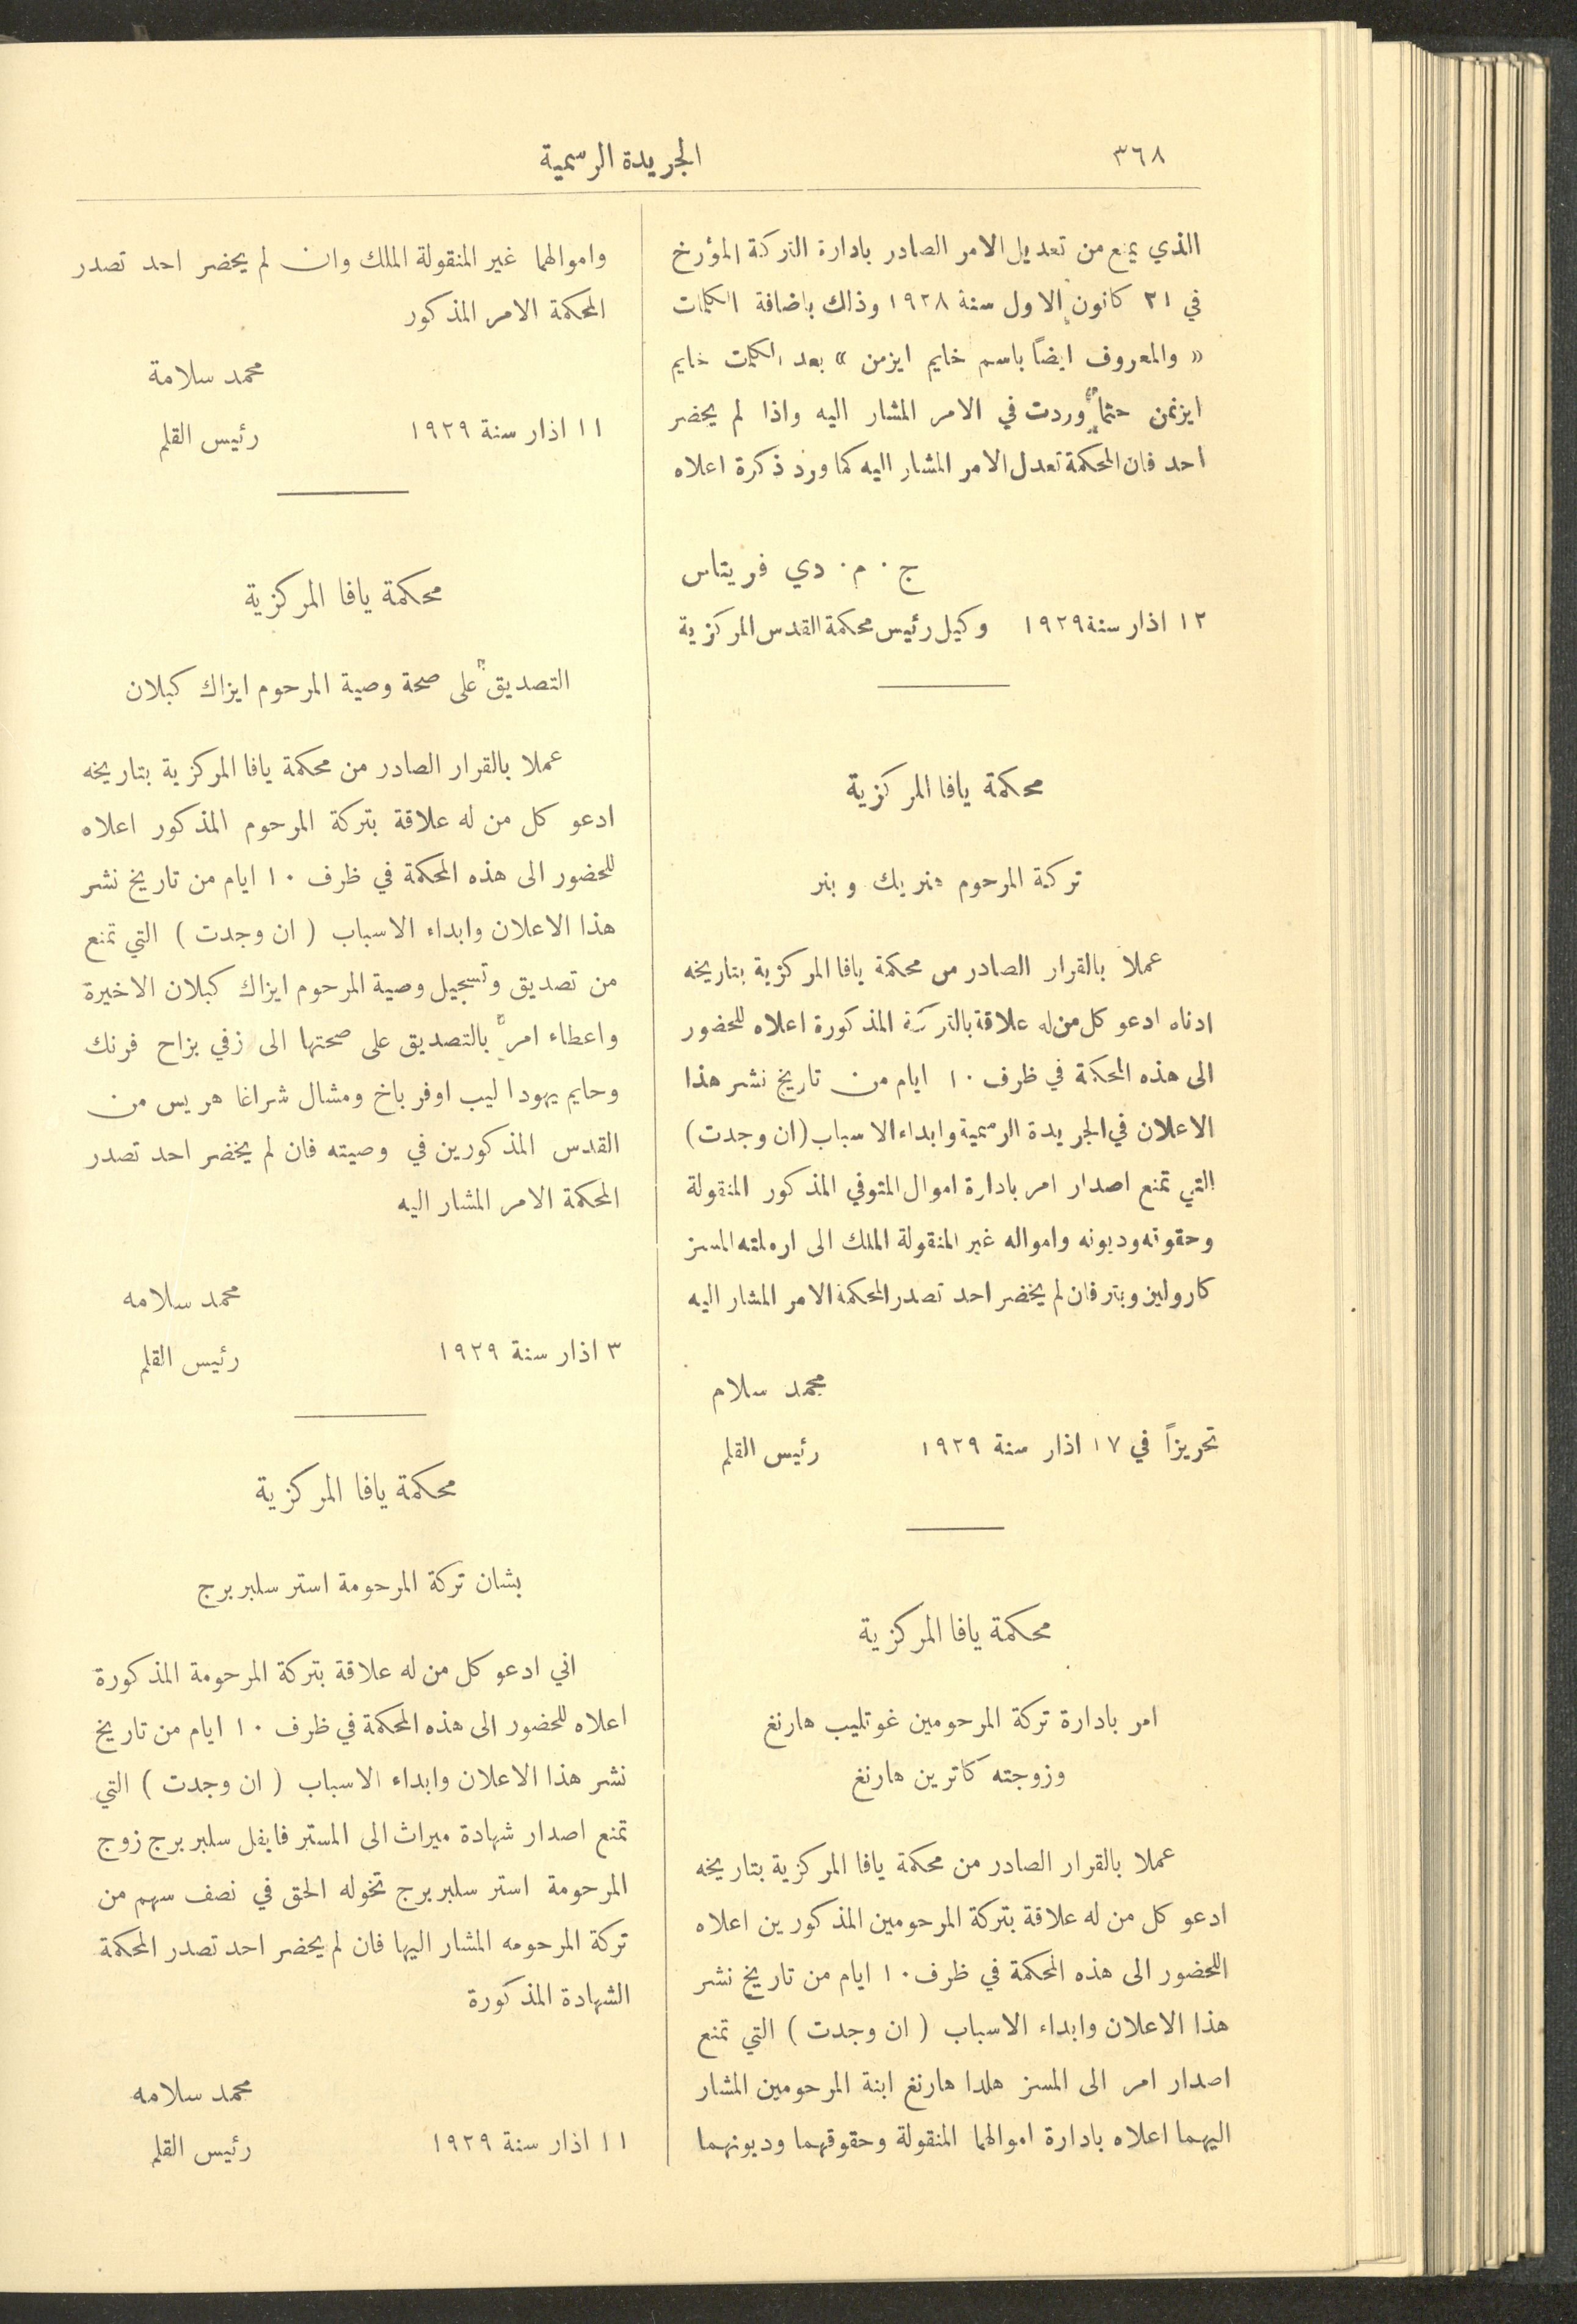 ٣٦٨
الجريدة الرسمية
الذي يمنع من تعديل الامر الصادر بادارة التركة المؤرخ
في ٢١ كانون الاول سنة ١٩٢٨ وذلك باضافة الكلمات
« والمعروف ايضاً باسم خايم ايزمن » بعد الكلمات خايم
ايزنمن حثما وردت في الامر المشار اليه واذا لم يحضر
احد فان المحكمة تعدل الامر المشار اليه كما ورد ذكرة اعلاه
ج . م . دي فريتاس
١٢ اذار سنة ١٩٢٩ وكيل رئيس محكمة القدس المركزية
محكمة يافا المركزية
تركة المرحوم هنريك وبنر
عملا بالقرار الصادر من محكمة يافا المركزية بتاريخه
ادناه ادعو كل من له علاقة بالتركة المذكورة اعلاه للحضور
الى هذه المحكمة في ظرف ١٠ ايام من تاريخ نشر هذا
الاعلان في الجريدة الرسمية وابداء الاسباب (ان وجدت)
التي تمنع اصدار امر بادارة اموال المتوفي المذكور المنقولة
وحقوقه وديونه وامواله غير المنقولة الملك الى ارملته المسز
كارولين وبنر فان لم يخضر احد تصدر المحكمة الامر المشار اليه
محمد سلام
تحريزاً في ١٧ اذار سنة ١٩٢٩ رئيس القلم
محكمة يافا المركزية
امر بادارة تركة المرحومين غوتليب هارنغ
وزوجته كاترين هارنغ
عملا بالقرار الصادر من محكمة يافا المركزية بتاريخه
ادعو كل من له علاقة بتركة المرحومين المذكورين اعلاه
اللحضور الى هذه المحكمة في ظرف ١٠ ايام من تاريخ نشر
هذا الاعلان وابداء الاسباب ( ان وجدت ) التي تمنع
اصدار امر الى المسز هلدا هارنغ ابنة المرحومين المشار
اليهما اعلاه بادارة اموالهما المنقولة وحقوقهما وديونهما
واموالهما غير المنقولة الملك وان لم يحضر احد تصدر
المحكمة الامر المذكور
محمد سلامة
١١ اذار سنة ١٩٢٩ رئيس القلم
محكمة يافا المركزية
التصديق على صحة وصية المرحوم ايزاك كبلان
عملا بالقرار الصادر من محكمة يافا المركزية بتاريخه
ادعو كل من له علاقة بتركة المرحوم المذكور اعلاه
للحضور الى هذه المحكمة في ظرف ١٠ ايام من تاريخ نشر
هذا الاعلان وابداء الاسباب ( ان وجدت ) التي تمنع
من تصديق وتسجيل وصية المرحوم ايزاك كبلان الاخيرة
واعطاء امر بالتصديق على صحتها الى زفي بزاح فرنك
وحايم يهودا ليب اوفر باخ ومشال شراغا هريس من
القدس المذكورين في وصيته فان لم يخضر احد تصدر
المحكمة الامر المشار اليه
محمد سلامه
٣ اذار سنة ١٩٢٩ رئيس القلم
محكمة يافا المركزية
بشان تركة المرحومة استر سلبر برج
اني ادعو كل من له علاقة بتركة المرحومة المذكورة
اعلاه للحضور الى هذه المحكمة في ظرف ١٠ ايام من تاريخ
نشر هذا الاعلان وابداء الاسباب ( ان وجدت ) التي
تمنع اصدار شهادة ميراث الى المستر فايفل سلبر برج زوج
المرحومة استر سلبر برج تخوله الحق في نصف سهم من
تركة المرحومه المشار اليها فان لم يحضر احد تصدر المحكمة
الشهادة المذكورة
محمد سلامه
١١ اذار سنة ١٩٢٩ رئيس القلم